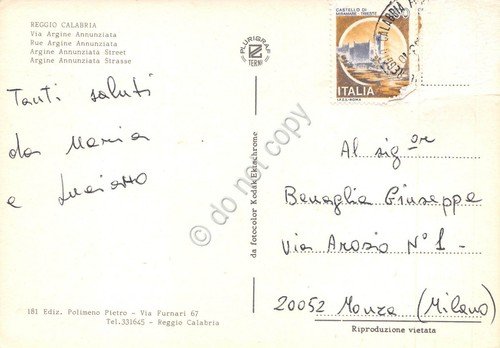 REGGIO CALABRIA
Via Argine Annunziata
Rue Argine Annunziata
Argine Annunziata Street
Argine Annunziata Strasse
PLURIGRAF
TERNI
CASTELLO DI
MIRAMARE - TRIESTE
ITALIA
I.P.Z.S. ROMA
Tanti saluti
da Maria
e Luciano
da fotocolor Kodak Ektachrome
do not copy
Al sigore
Benaglia Giuseppe
Via Arosio N° 1 -
20052 Monza (Milano)
181 Ediz. Polimeno Pietro - Via Furnari 67
Tel.331645 - Reggio Calabria
Riproduzione vietata